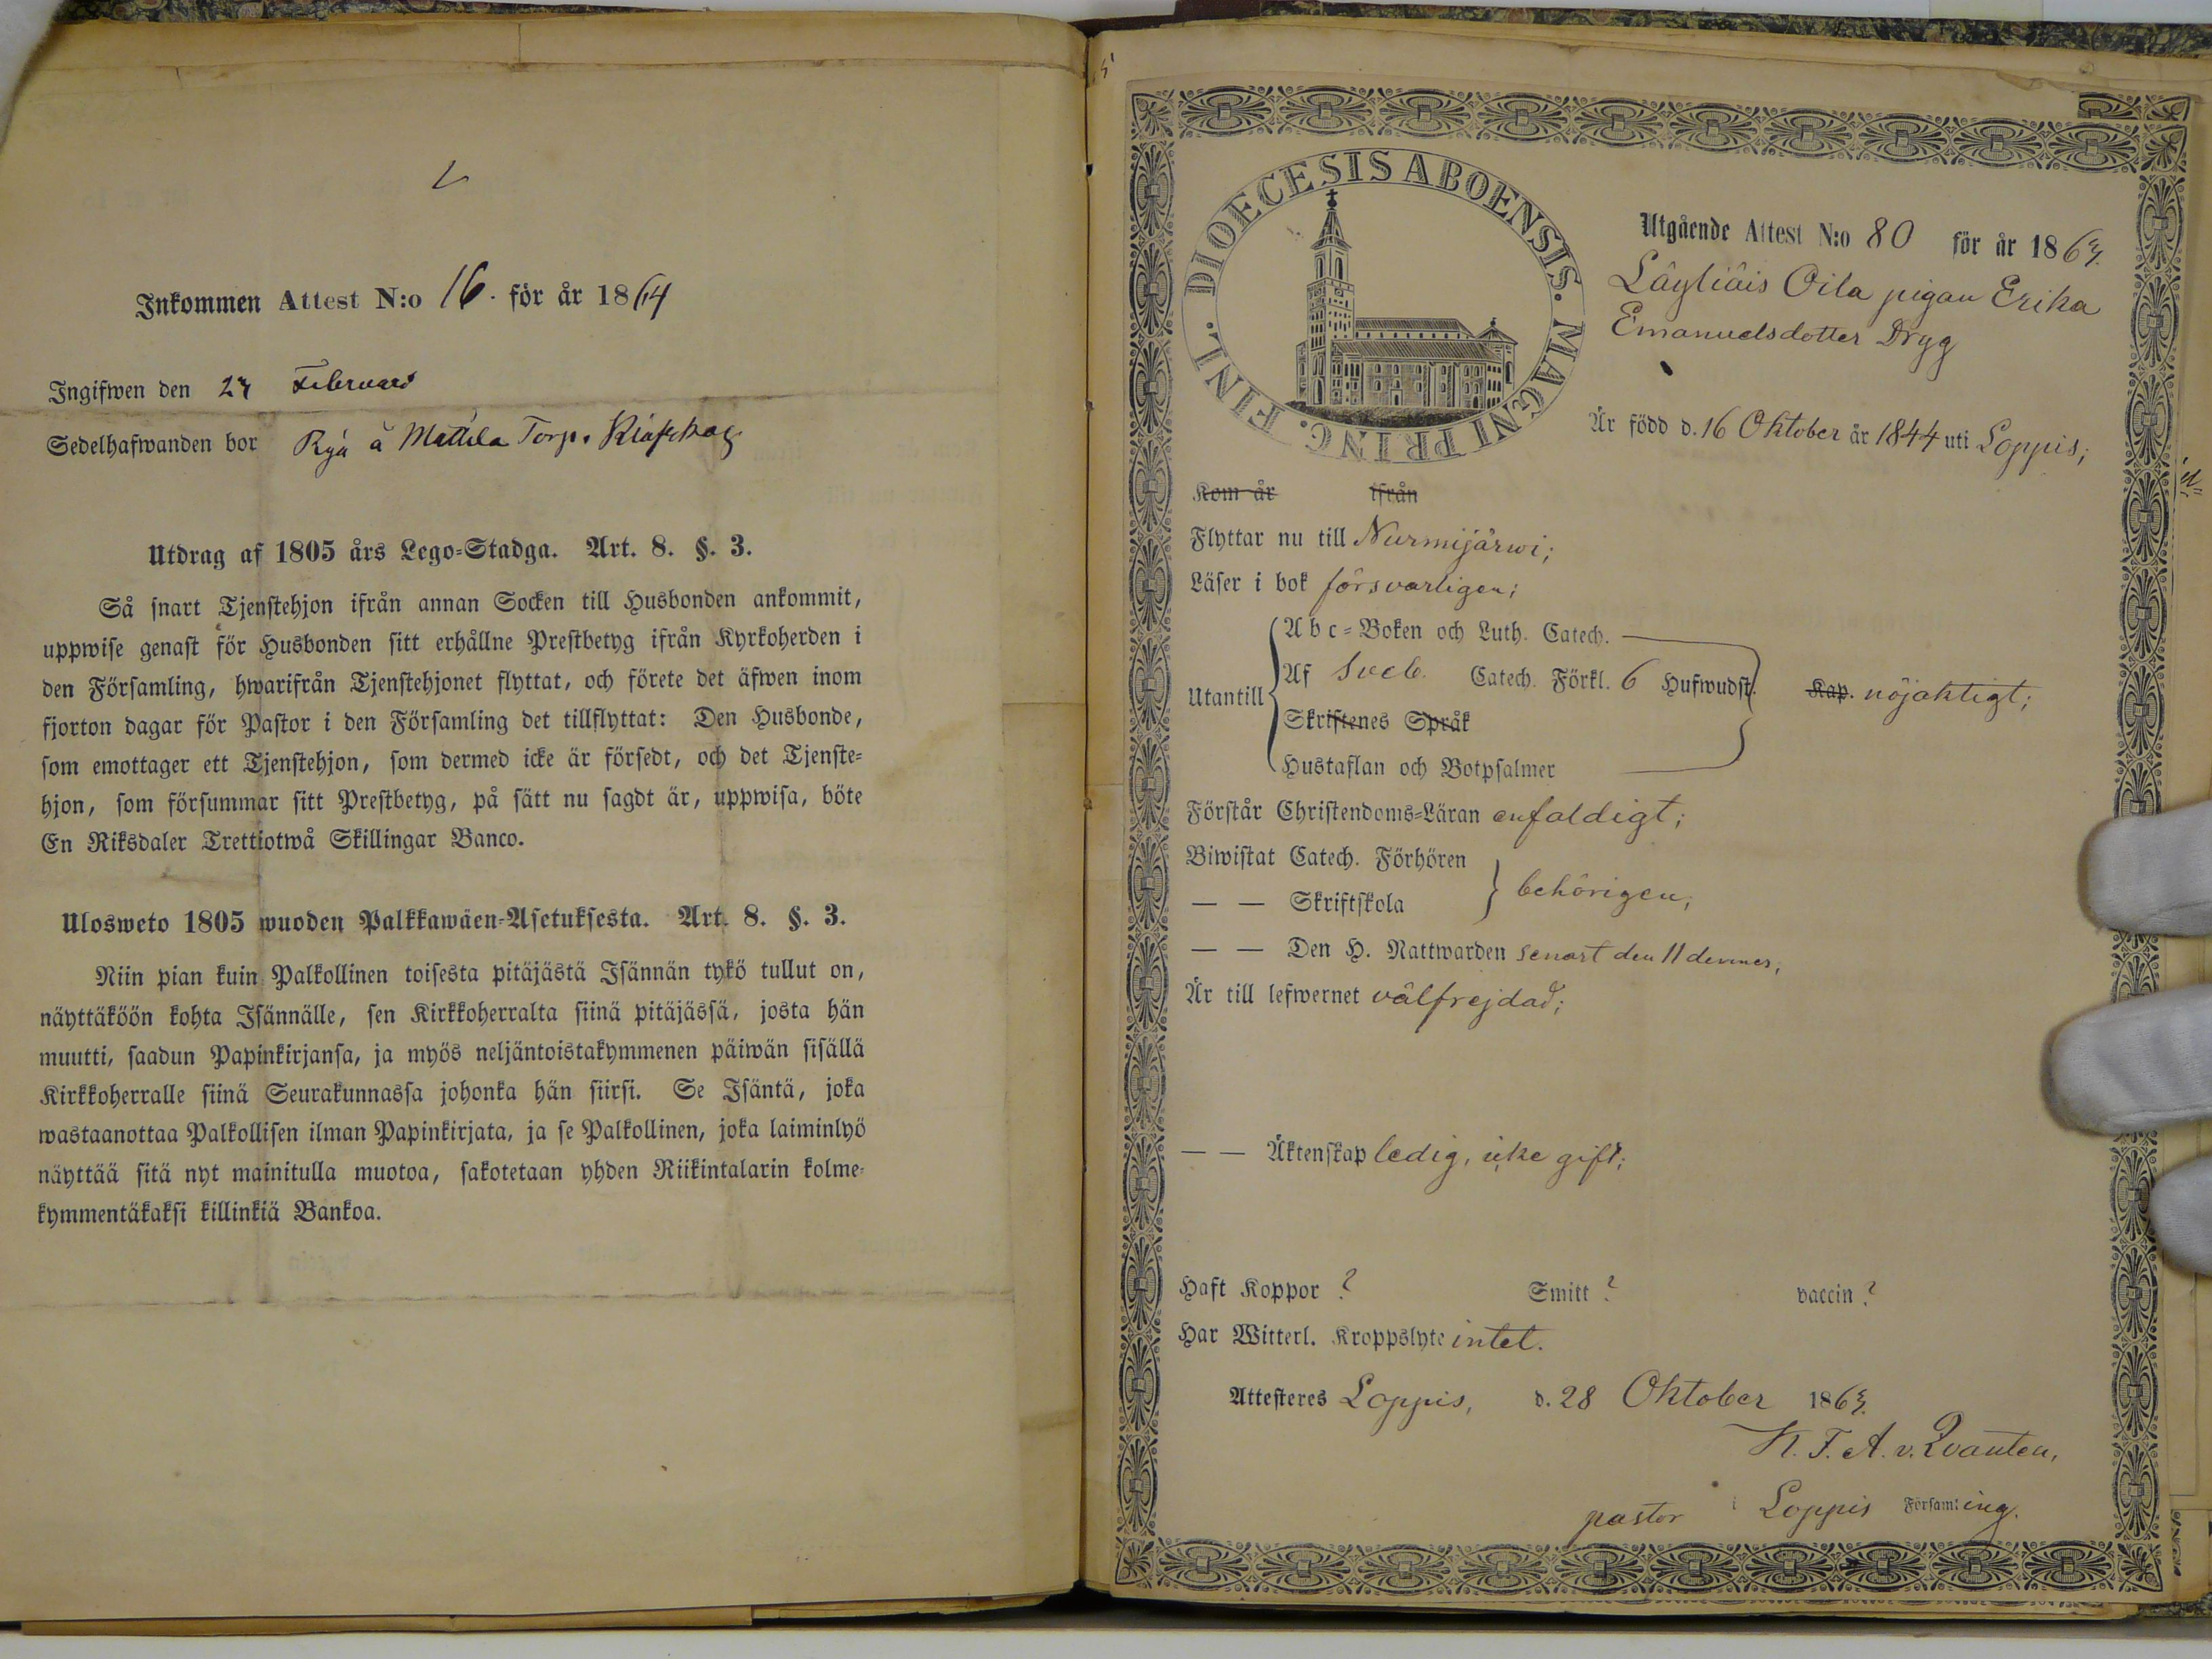 Inkommen Attest N:o 16. för år 1864
Ingifwen den 27 Februari
Sedelhafwanden bor Ryå å Mattila Torp.
Utdrag af 1805 års Lego-Stadga. Art. 8. §. 3.
Så snart Tjenstehjon ifrån annan Socken till Husbonden ankommit,
uppwise genast för Husbonden sitt erhållne Prestbetyg ifrån Kyrkoherden i
den Församling, hwarifrån Tjenstehjonet flyttat, och förete det äfwen inom
fjorton dagar för Pastor i den Församling det tillflyttat: Den Husbonde,
som emottager ett Tjenstehjon, som dermed icke är försedt, och det Tjenste-
hjon, som försummar sitt Prestbetyg, på sätt nu sagdt är, uppwisa, böte
En Riksdaler Trettiotwå Skillingar Banco.
Ulosweto 1805 wuoden Palkkawäen-Asetuksesta. Art. 8. §. 3.
Niin pian kuin Palkollinen toisesta pitäjästä Isännän tykö tullut on,
näyttäköön kohta Isännälle, sen Kirkkoherralta siinä pitäjässä, josta hän
muutti, saadun Papinkirjansa, ja myös neljäntoistakymmenen päiwän sisällä
Kirkkoherralle siinä Seurakunnassa johonka hän siirsi. Se Isäntä, joka
wastaanottaa Palkollisen ilman Papinkirjata, ja se Palkollinen, joka laiminlyö
näyttää sitä nyt mainitulla muotoa, sakotetaan yhden Riikintalarin kolme-
kymmentäkaksi killinkiä Bankoa.
DIOECESIS ABOENSIS. MAGNI PRINC. FINL.
Utgående Attest N:o 80 för år 1863.
Läyliäis Oila pigan Erika
Emanuelsdotter Dryg
Är född d. 16 Oktober år 1844 uti Loppis;
Kom år ifrån
Flyttar nu till Nurmijärwi;
Läser i bok försvarligen;
Utantill
Abc-Boken och Luth. Catech.
Af Sveb. Catech. Förkl. 6 Hufwudst. Kap. nöjaktigt;
Skriftenes Språk
Hustaflan och Botpsalmer
Förstår Christendoms-Läran enfaldigt;
Biwistat Catech. Förhören
— — Skriftskola behörigen;
— — Den H. Nattwarden senast den 11 dennes;
Är till lefwernet välfrejdad;
— — Äktenskap ledig, icke gift;
Haft Koppor ? Smitt ? vaccin ?
Har Witterl. Kroppslyte intet.
Attesteres Loppis, d. 28 Oktober 1863.
K. F. A. v. Qvanten,
pastor i Loppis Församling.